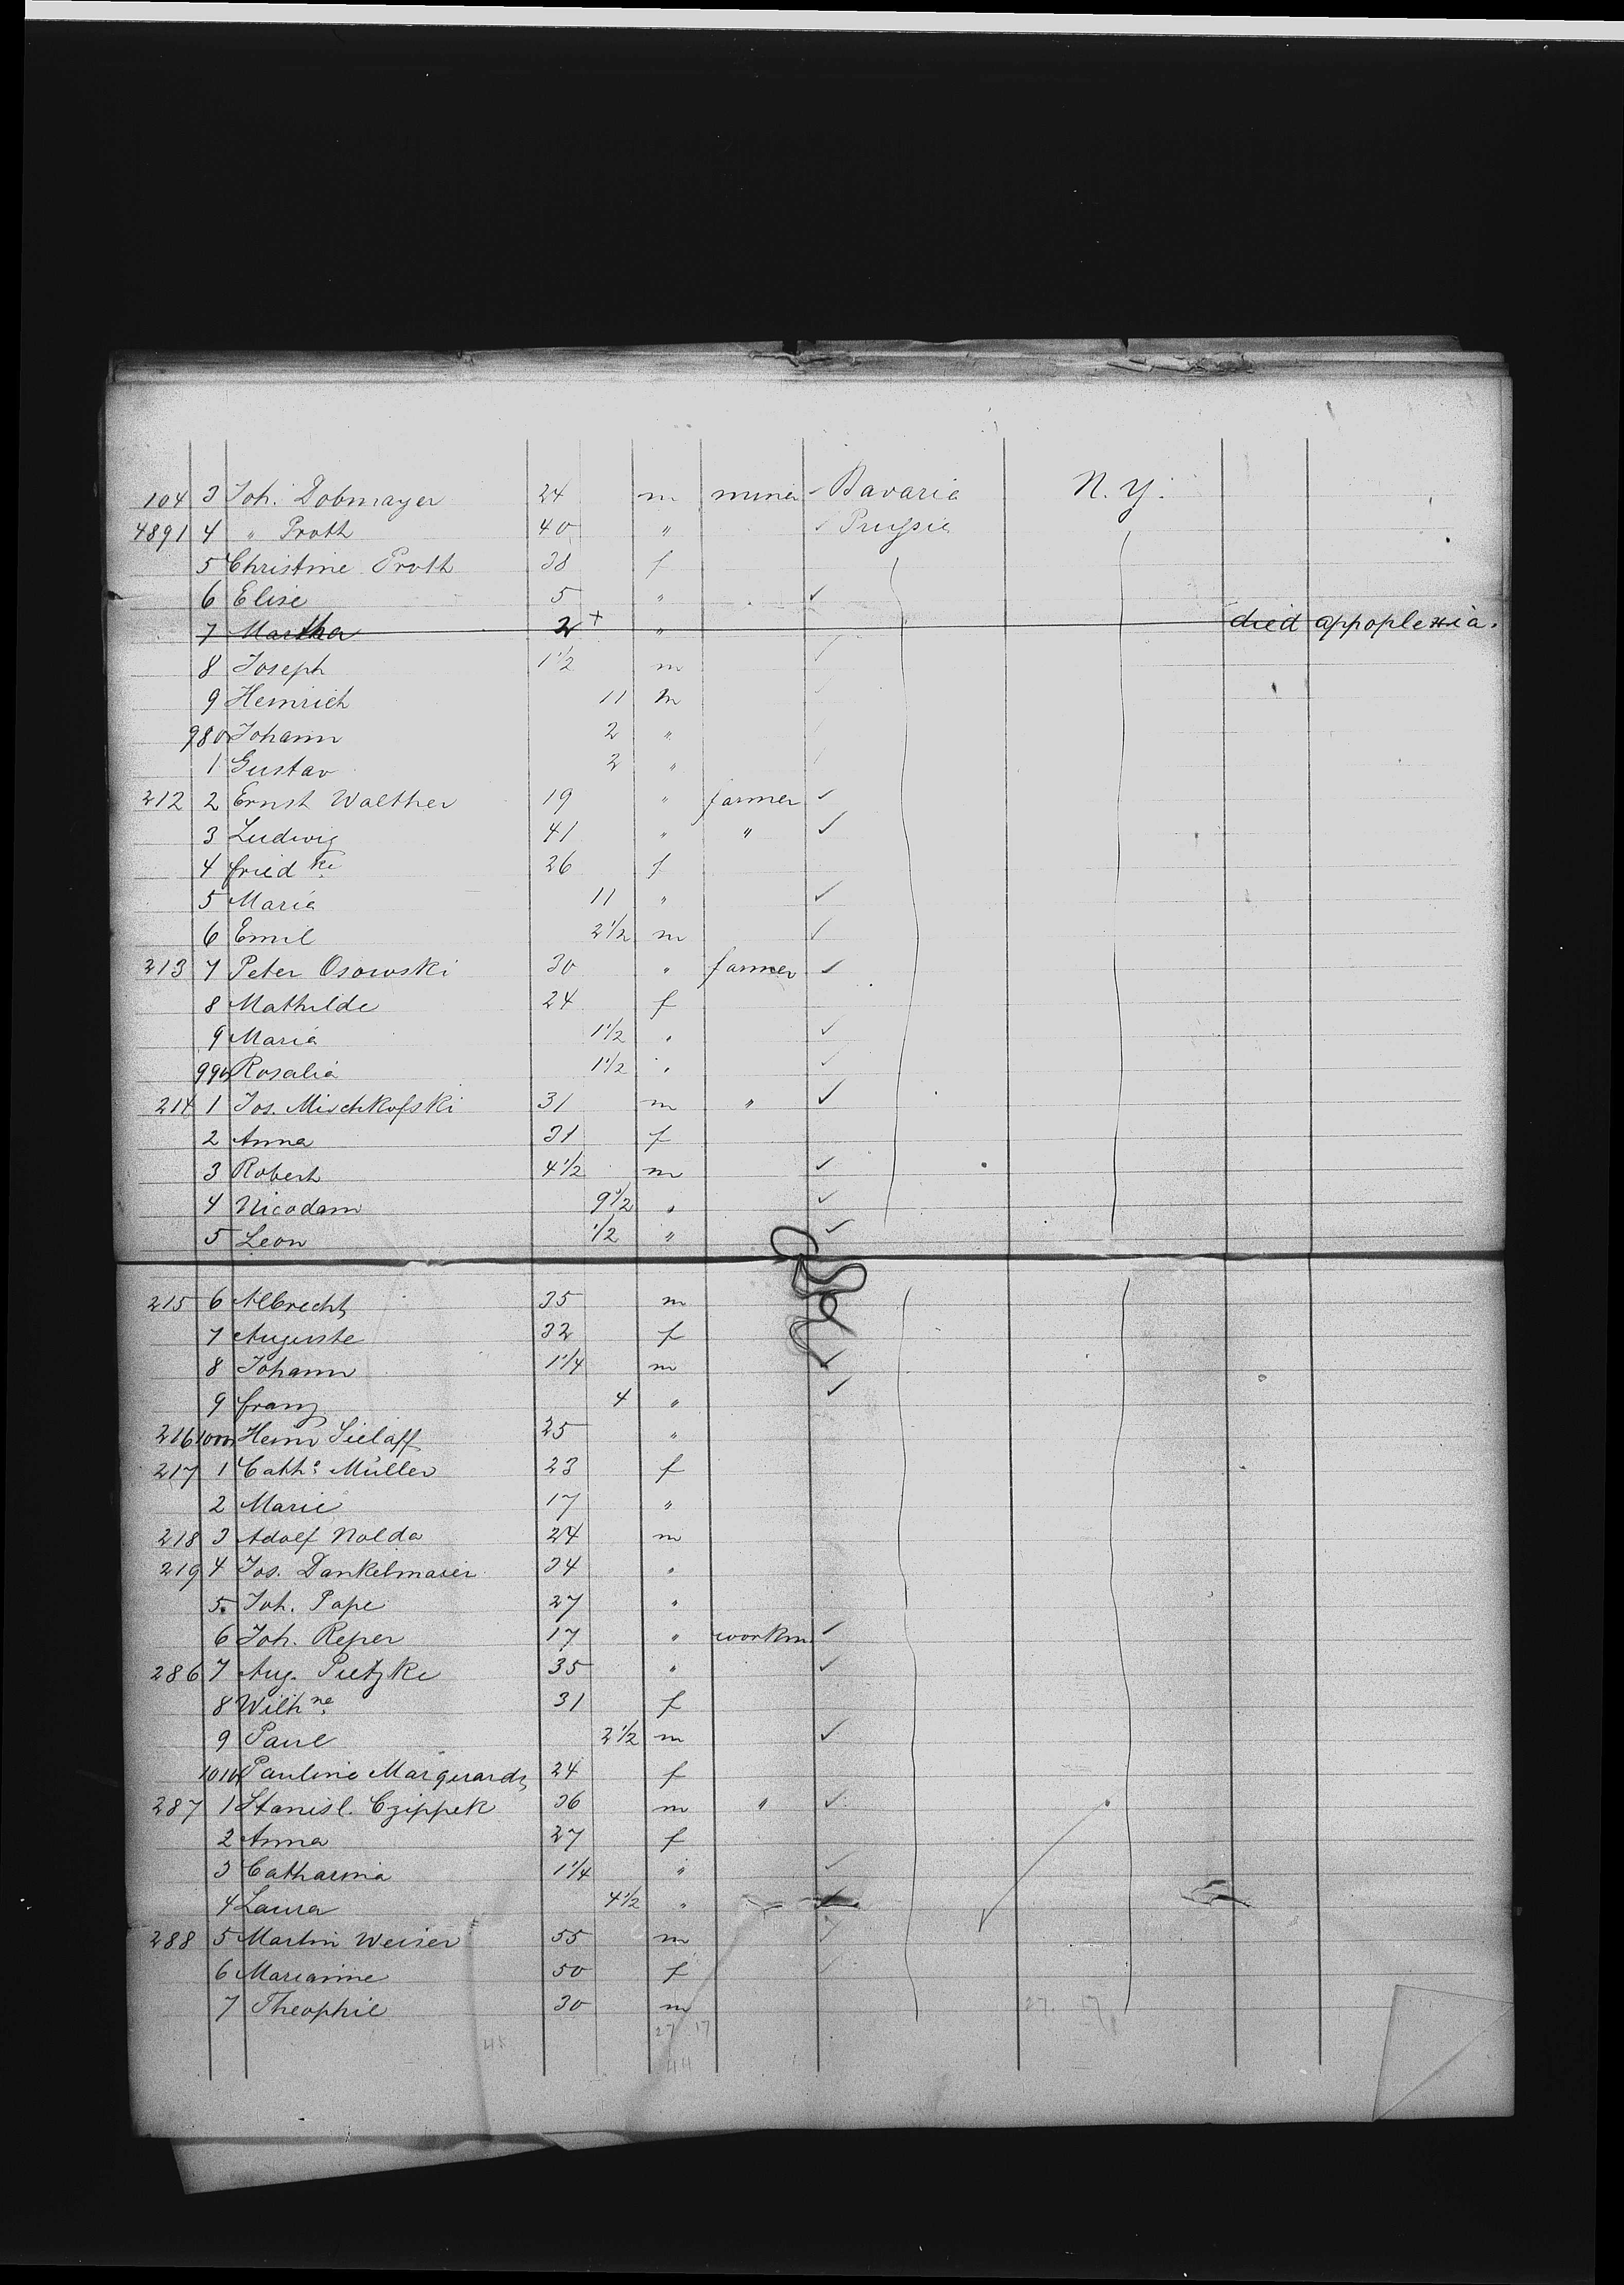 104 3 Joh. Dobmayer 24 m miner Bavaria N. Y.
4891 4 " Proth 40 " ✓ Prussia
5 Christine Proth 38 f
6 Elise 5 " ✓
7 Martha 2 + " died appoplexia.
8 Joseph 1 1/2 m ✓
9 Heinrich 11 m ✓
980 Johann 2 " ✓
1 Gustav 2 " ✓
212 2 Ernst Walther 19 " farmer ✓
3 Ludwig 41 " " ✓
4 Friedke 26 f
5 Maria 11 " ✓
6 Emil 2 1/2 m ✓
213 7 Peter Osowski 30 " farmer ✓
8 Mathilde 24 f
9 Maria 1 1/2 " ✓
990 Rosalia 1 1/2 " ✓
214 1 Jos. Mischkofski 31 m " ✓
2 Anna 31 f
3 Robert 4 1/2 m ✓
4 Nicodam 9 1/2 " ✓
5 Leon 1/2 " ✓
215 6 Albrecht 35 m
7 Auguste 32 f
8 Johann 1 1/4 m ✓
9 Franz 4 " ✓
216 1000 Heinr Sielaff 25 "
217 1 Cathe Müller 23 f
2 Marie 17 "
218 3 Adolf Nolda 24 m
219 4 Jos. Dankelmaier 34 "
5. Joh. Pape 27 "
6 Joh. Reper 17 " workm ✓
286 7 Aug. Pietzke 35 " ✓
8 Wilhne 31 f
9 Paul 2 1/2 m ✓
1010 Pauline Marquardt 24 f
287 1 Stanisl. Czippek 36 m " ✓
2 Anna 27 f
3 Catharina 1 1/4 " ✓
4 Laura 4 1/2 " ✓
288 5 Martin Weiser 55 m ✓
6 Marianne 50 f ✓
7 Theophil 30 m 27. 17
27 17
45 44